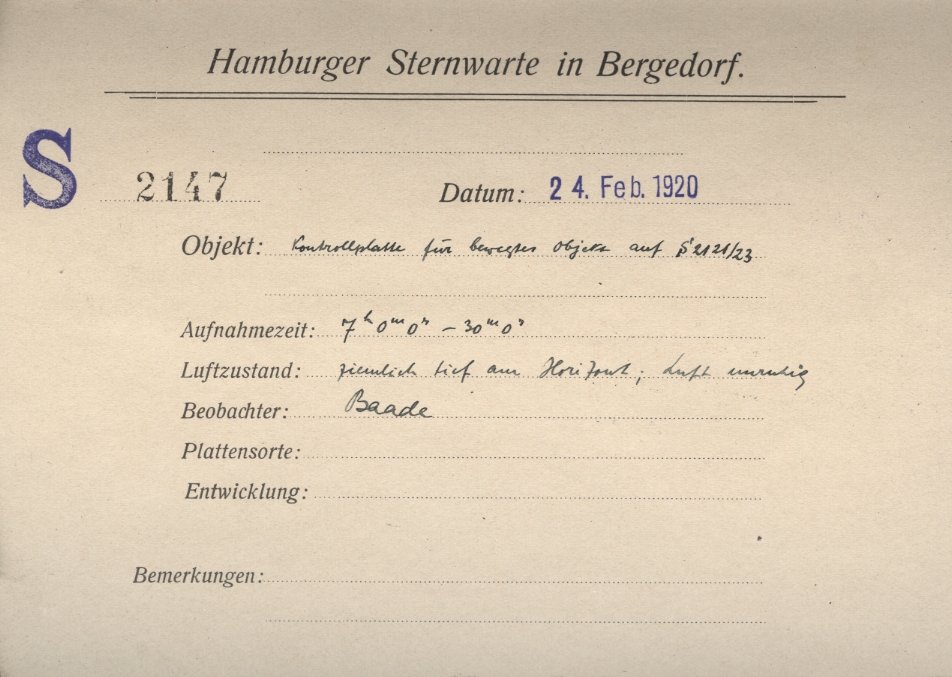 Hamburger Sternwarte in Bergedorf.
S 2147 Datum: 24. Feb. 1920
Objekt: Kontrollplatte für bewegtes Objekt auf S 2121/23
Aufnahmezeit: 7ʰ 0ᵐ 0ˢ – 30ᵐ 0ˢ
Luftzustand: ziemlich tief am Horizont; Luft unruhig
Beobachter: Baade
Plattensorte:
Entwicklung:
Bemerkungen: